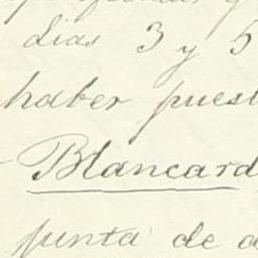 dias 3 y 5
haber puest
Blancard
punta de d